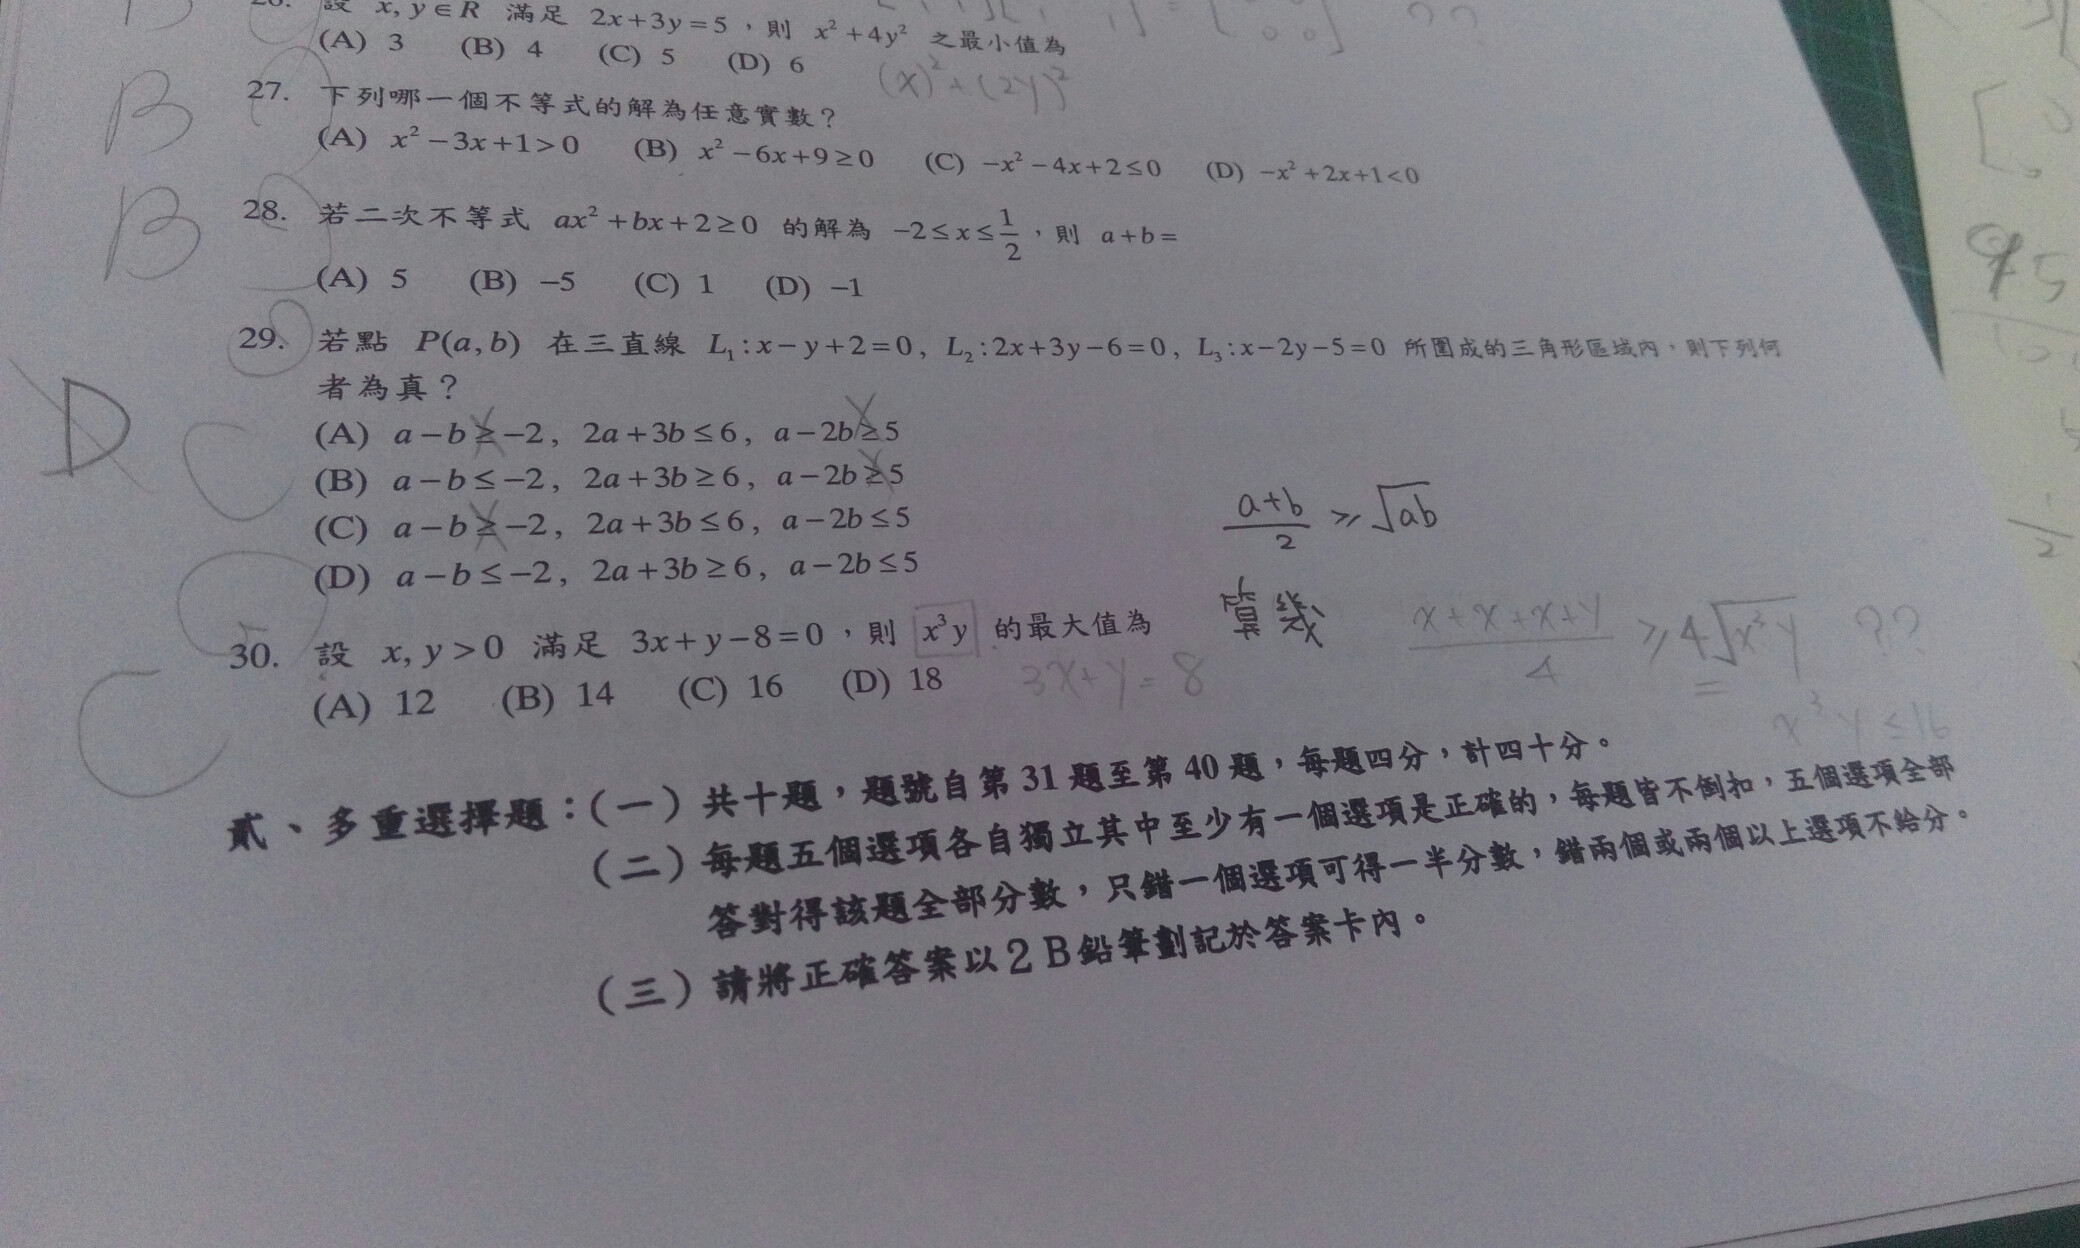 設 x, y∈R 滿足 2x+3y=5，則 x²+4y² 之最小值為
(A) 3 (B) 4 (C) 5 (D) 6
(x)²+(2y)²
B 27. 下列哪一個不等式的解為任意實數？
(A) x²−3x+1>0 (B) x²−6x+9≥0 (C) −x²−4x+2≤0 (D) −x²+2x+1<0
B 28. 若二次不等式 ax²+bx+2≥0 的解為 −2≤x≤1/2，則 a+b=
(A) 5 (B) −5 (C) 1 (D) −1
29. 若點 P(a,b) 在三直線 L₁:x−y+2=0, L₂:2x+3y−6=0, L₃:x−2y−5=0 所圍成的三角形區域內，則下列何
者為真？
D C
(A) a−b≥−2, 2a+3b≤6, a−2b≥5
(B) a−b≤−2, 2a+3b≥6, a−2b≥5
(C) a−b≥−2, 2a+3b≤6, a−2b≤5
(D) a−b≤−2, 2a+3b≥6, a−2b≤5
(a+b)/2 ≥ √ab
算幾
(x+x+x+y)/4 ≥ 4√x³y ??
=
x³y≤16
C 30. 設 x, y>0 滿足 3x+y−8=0，則 x³y 的最大值為
(A) 12 (B) 14 (C) 16 (D) 18
3x+y=8
貳、多重選擇題：(一) 共十題，題號自第 31 題至第 40 題，每題四分，計四十分。
(二) 每題五個選項各自獨立其中至少有一個選項是正確的，每題皆不倒扣，五個選項全部
答對得該題全部分數，只錯一個選項可得一半分數，錯兩個或兩個以上選項不給分。
(三) 請將正確答案以2B鉛筆劃記於答案卡內。